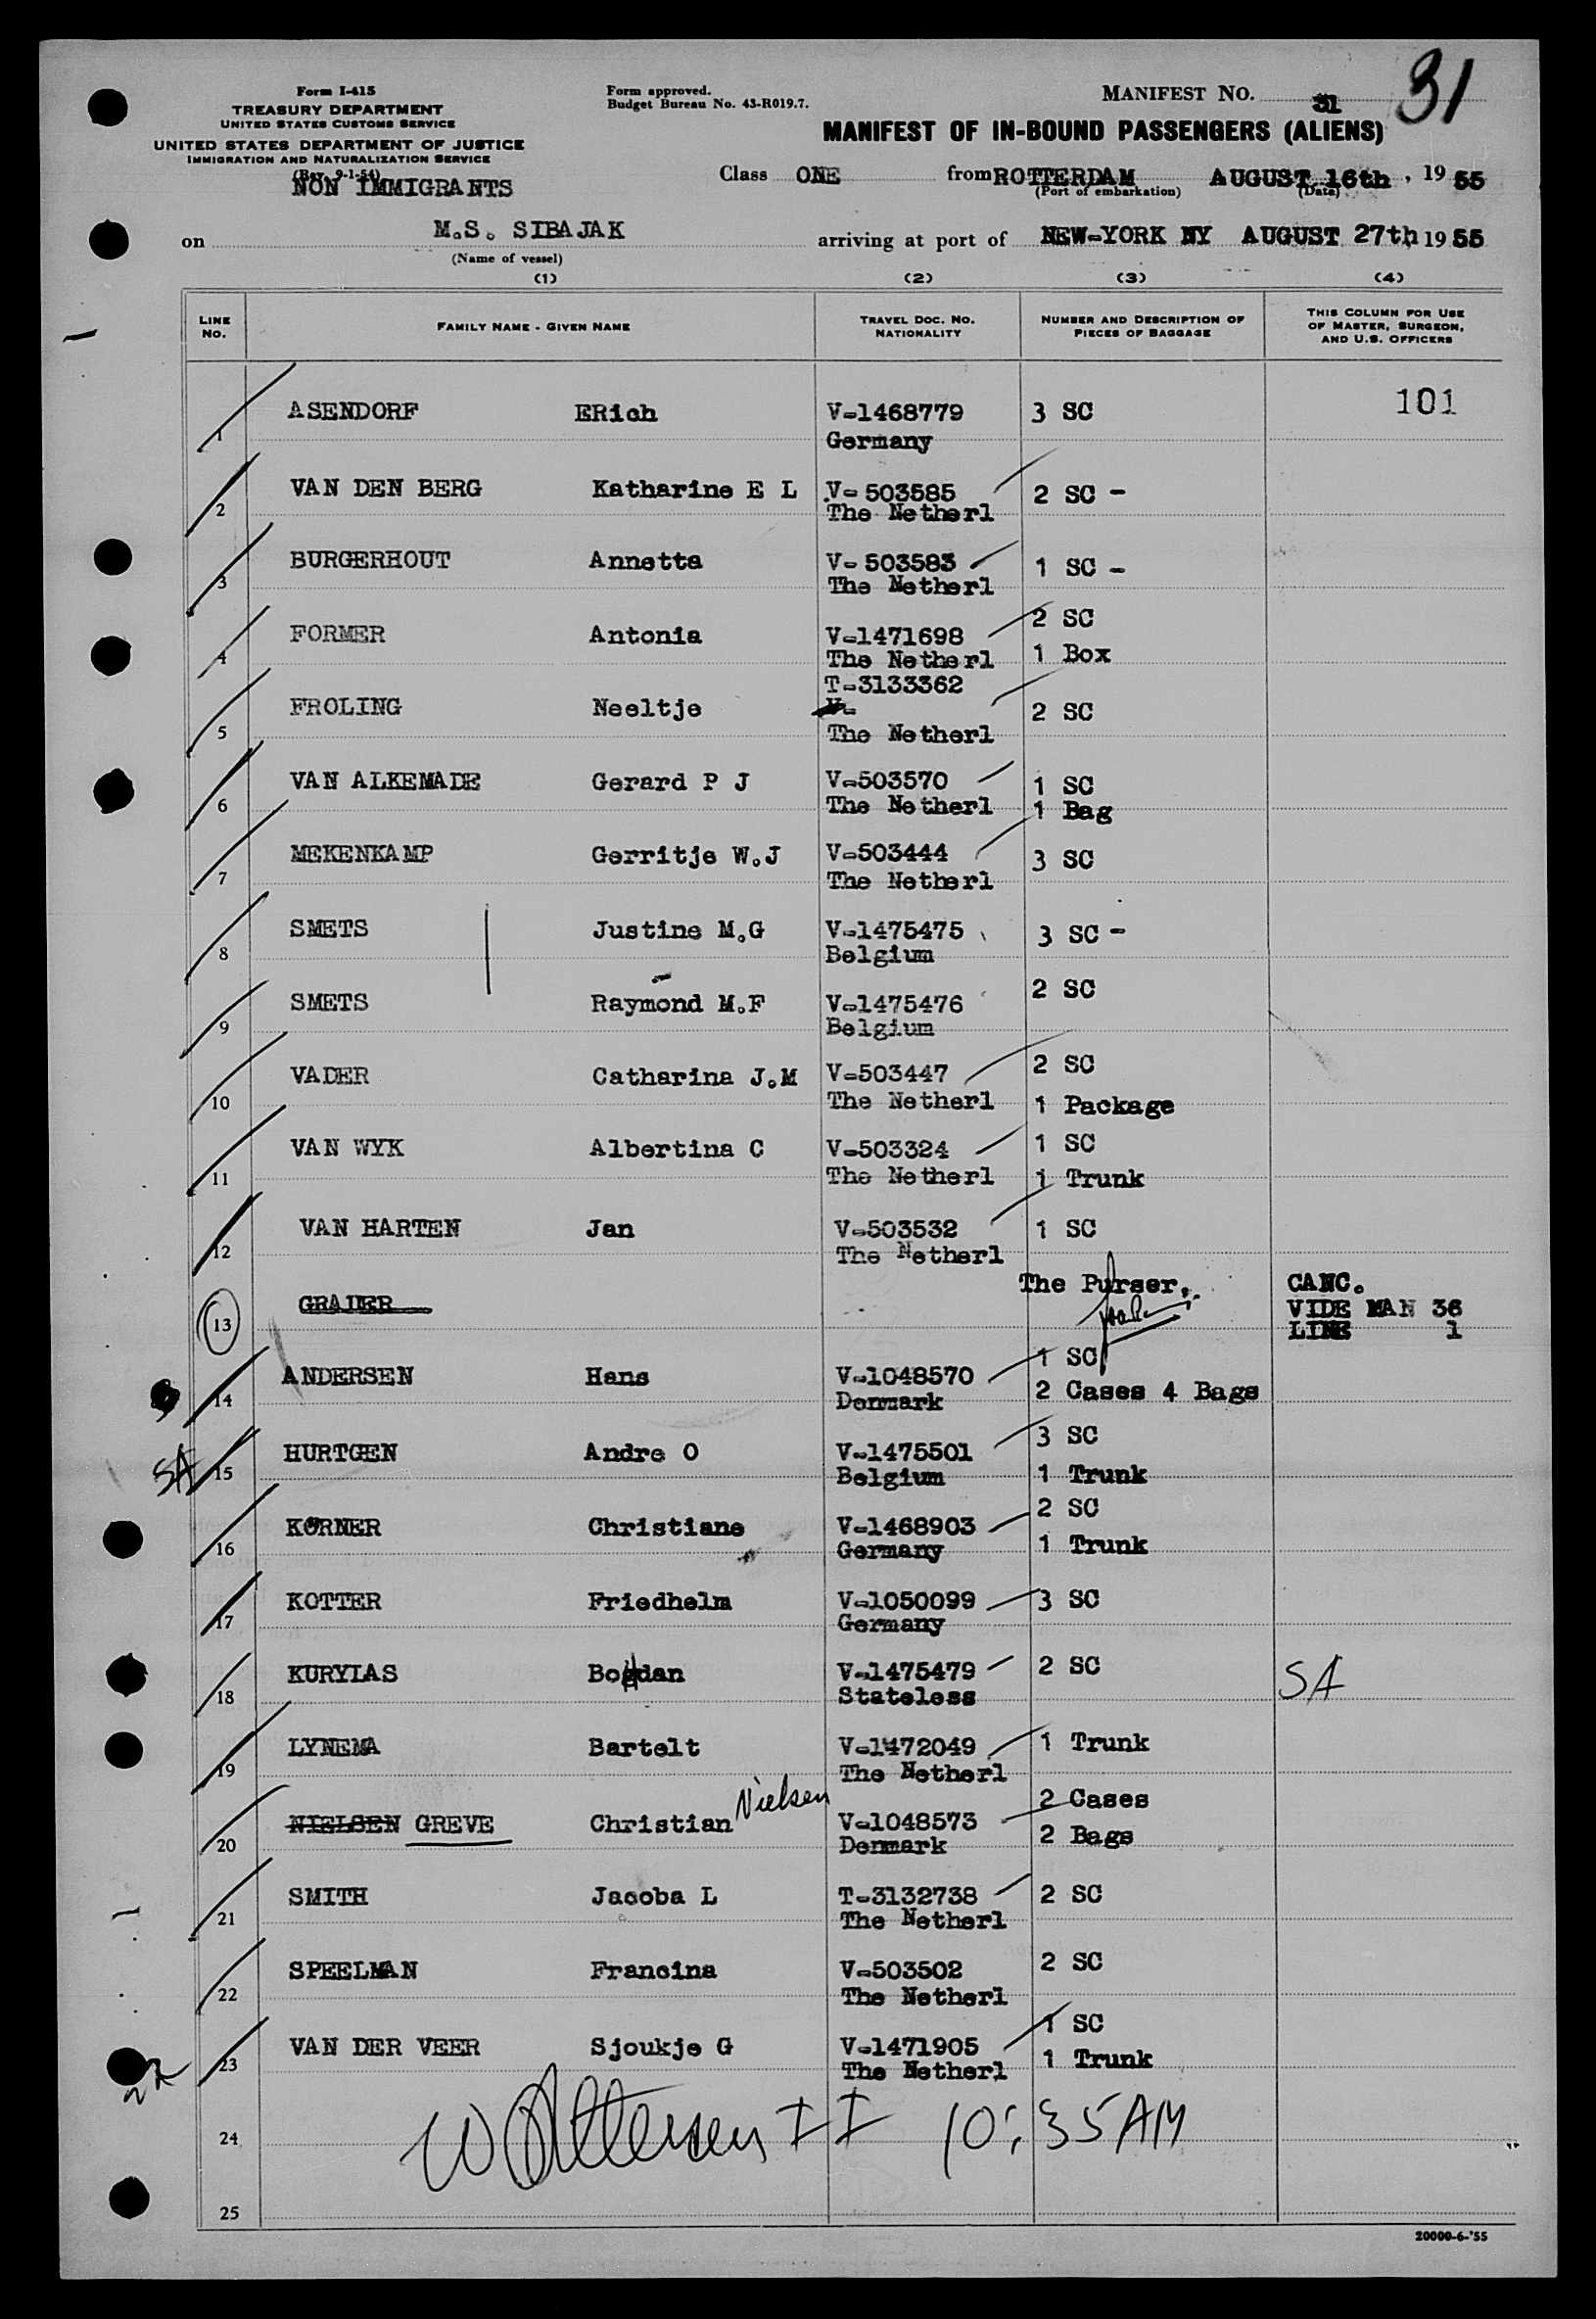 Form I-415
TREASURY DEPARTMENT
UNITED STATES CUSTOMS SERVICE
UNITED STATES DEPARTMENT OF JUSTICE
IMMIGRATION AND NATURALIZATION SERVICE
(Rev. 9-1-54)
NON IMMIGRANTS
Form approved.
Budget Bureau No. 43-R019.7.
MANIFEST NO. 31
31
MANIFEST OF IN-BOUND PASSENGERS (ALIENS)
Class ONE from ROTTERDAM AUGUST 16th, 1955
(Port of embarkation) (Date)
on M.S. SIBAJAK arriving at port of NEW-YORK NY AUGUST 27th 1955
(Name of vessel)
(1) (2) (3) (4)
LINE NO. FAMILY NAME - GIVEN NAME TRAVEL DOC. NO. NATIONALITY NUMBER AND DESCRIPTION OF PIECES OF BAGGAGE THIS COLUMN FOR USE OF MASTER, SURGEON, AND U.S. OFFICERS
1 ASENDORF ERich V-1468779 3 SC 101
Germany
2 VAN DEN BERG Katharine E L V- 503585 2 SC -
The Netherl
3 BURGERHOUT Annetta V- 503583 1 SC -
The Netherl
4 FORMER Antonia V-1471698 2 SC
The Netherl 1 Box
T-3133362
5 FROLING Neeltje V- 2 SC
The Netherl
6 VAN ALKEMADE Gerard P J V-503570 1 SC
The Netherl 1 Bag
7 MEKENKAMP Gerritje W.J V-503444 3 SC
The Netherl
8 SMETS Justine M.G V-1475475 3 SC -
Belgium
9 SMETS Raymond M.F V-1475476 2 SC
Belgium
10 VADER Catharina J.M V-503447 2 SC
The Netherl 1 Package
11 VAN WYK Albertina C V-503324 1 SC
The Netherl 1 Trunk
12 VAN HARTEN Jan V-503532 1 SC
The Netherl
The Purser, CANC.
13 VIDE MAN 36
LINE 1
14 ANDERSEN Hans V-1048570 1 SC
Denmark 2 Cases 4 Bags
SA 15 HURTGEN Andre O V-1475501 3 SC
Belgium 1 Trunk
16 KÖRNER Christiane V-1468903 2 SC
Germany 1 Trunk
17 KOTTER Friedhelm V-1050099 3 SC
Germany
18 KURYLAS Bogdan V-1475479 2 SC SA
Stateless
19 LYNEMA Bartelt V-1472049 1 Trunk
The Netherl
20 NIELSEN GREVE Christian Nielsen V-1048573 2 Cases
Denmark 2 Bags
21 SMITH Jacoba L T-3132738 2 SC
The Netherl
22 SPEELMAN Francina V-503502 2 SC
The Netherl
23 VAN DER VEER Sjoukje G V-1471905 1 SC
The Netherl 1 Trunk
24 II 10:35 AM
25
20000-6-'55